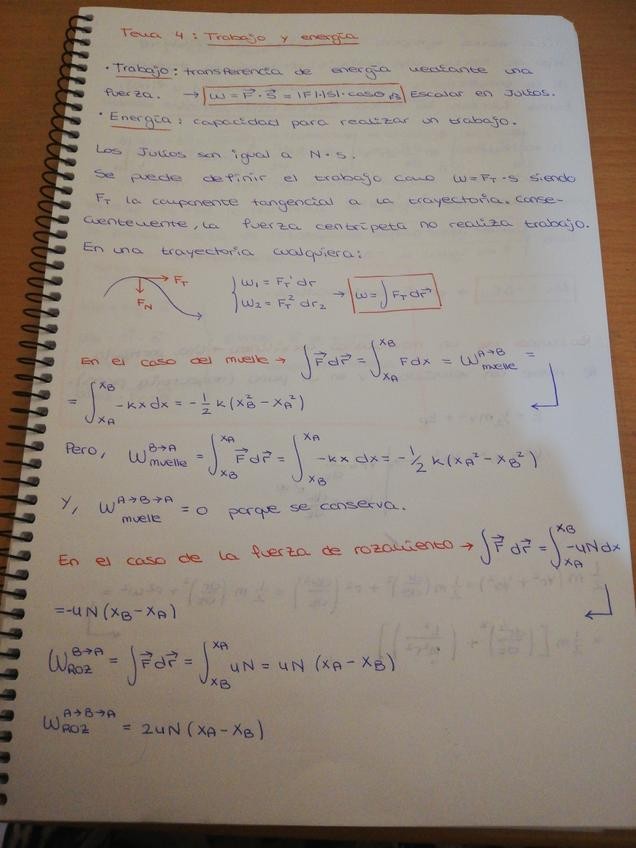 Tema 4: Trabajo y energía
· Trabajo: transferencia de energía mediante una
fuerza. → W = F⃗ · S⃗ = |F|·|S|·cosα Escalar en Julios.
· Energía: capacidad para realizar un trabajo.
Los Julios son igual a N·s.
Se puede definir el trabajo como W=F_T·s siendo
F_T la componente tangencial a la trayectoria. Conse-
cuentemente, la fuerza centrípeta no realiza trabajo.
En una trayectoria cualquiera:
F_T
F_N
W₁ = F_T¹ dr
W₂ = F_T² dr₂ → W = ∫ F_T dr⃗
En el caso del muelle → ∫ F⃗ dr⃗ = ∫_{XA}^{XB} Fdx = W_{muelle}^{A→B} =
= ∫_{XA}^{XB} -kx dx = -½ k (X_B² - X_A²)
Pero, W_{muelle}^{B→A} = ∫_{XB}^{XA} F⃗ dr⃗ = ∫_{XB}^{XA} -kx dx = -1/2 k (X_A² - X_B²)
Y, W_{muelle}^{A→B→A} = 0 porque se conserva.
En el caso de la fuerza de rozamiento → ∫ F⃗ dr⃗ = ∫_{XA}^{XB} -uN dx
= -uN (X_B - X_A)
W_{ROZ}^{B→A} = ∫ F⃗ dr⃗ = ∫_{XB}^{XA} uN = uN (X_A - X_B)
W_{ROZ}^{A→B→A} = 2uN (X_A - X_B)